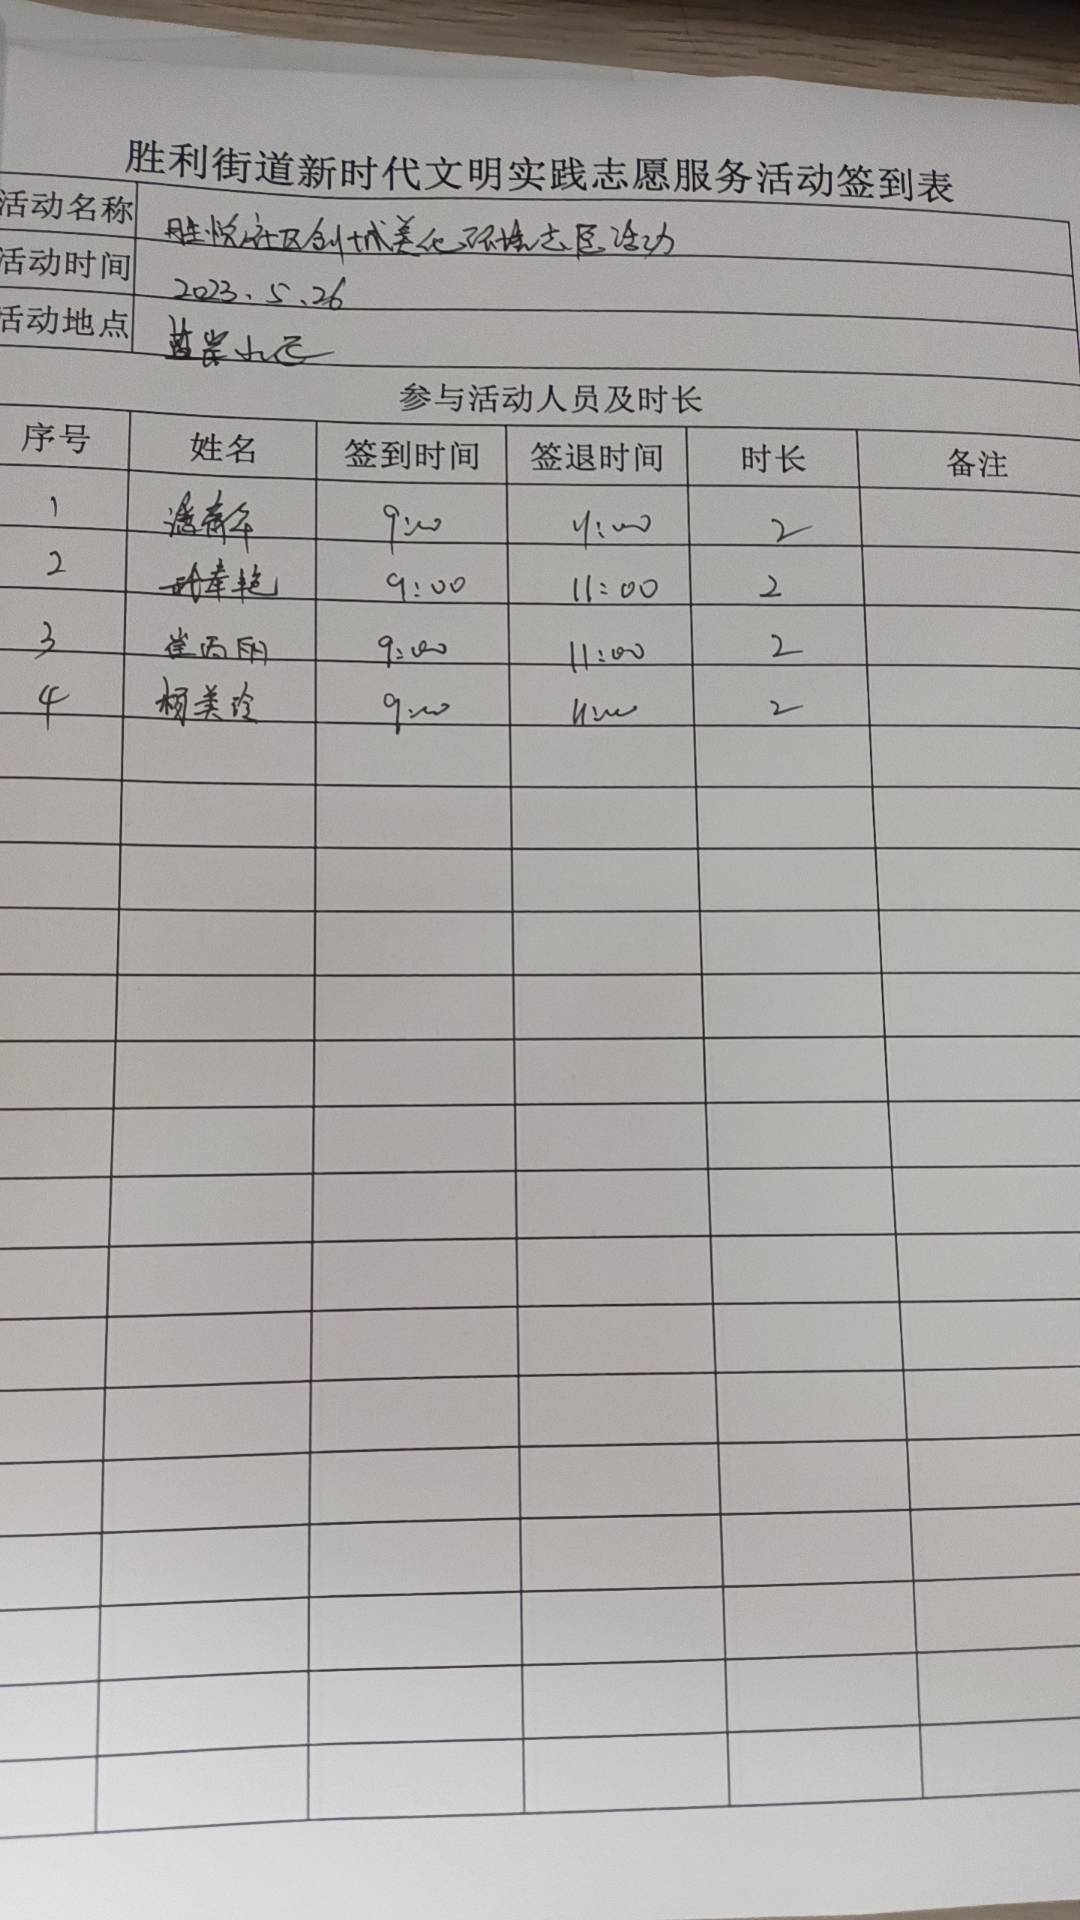 胜利街道新时代文明实践志愿服务活动签到表
活动名称 胜悦社区创城美化环境志愿活动
活动时间 2023.5.26
活动地点 蓝岸小区
参与活动人员及时长
序号 姓名 签到时间 签退时间 时长 备注
1 9:00 11:00 2
2 9:00 11:00 2
3 崔丙雨 9:00 11:00 2
4 杨美玲 9:00 11:00 2